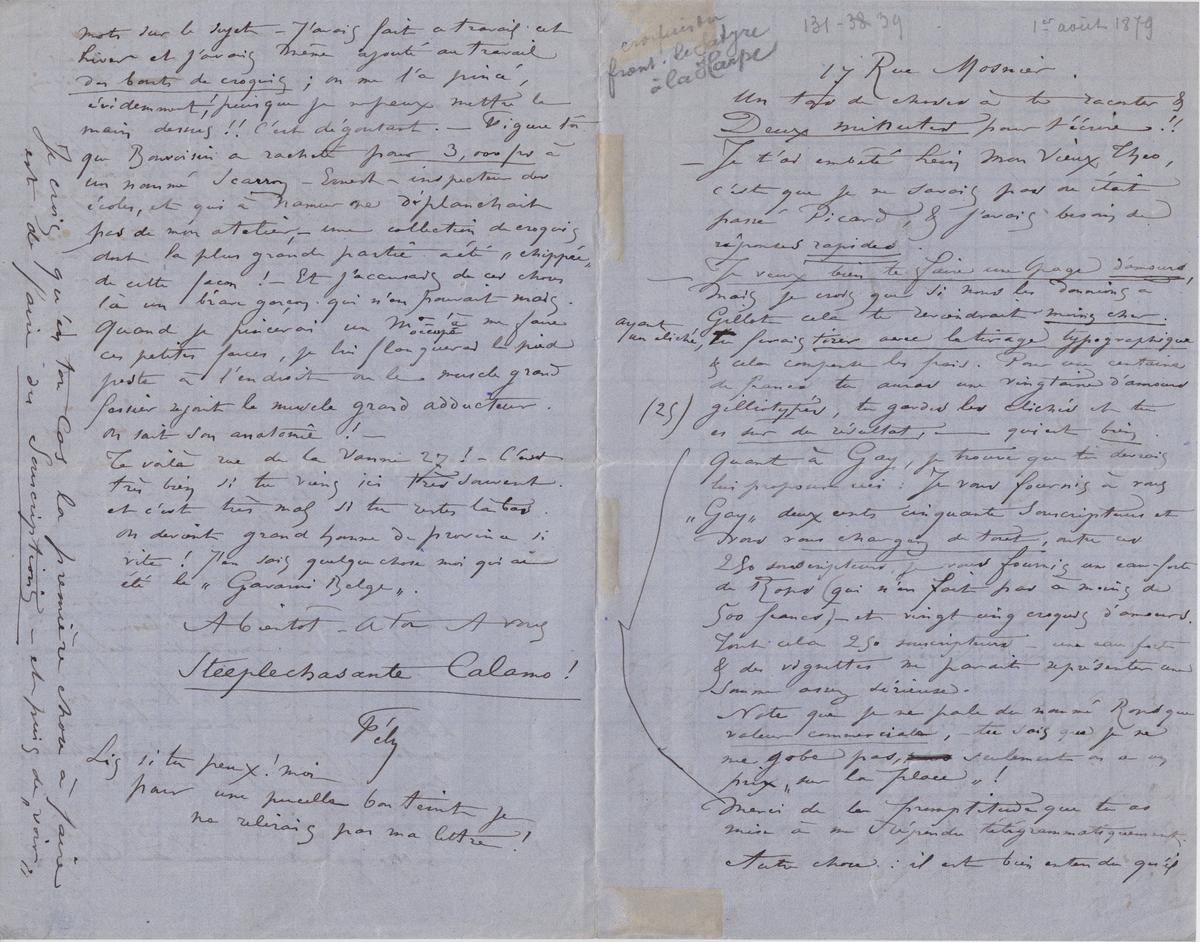 croquis du
front. le Satyre
à la Harpe
131-38 39
1er août 1879
17 Rue Mosnier.
Un tas de choses à te raconter &
Deux minutes pour t'écrire !!
— Je t'ai embêté hein mon vieux Theo,
c'est que je ne savais pas où était
passé Picard, & j'avais besoin de
réponses rapides.
Je veux bien te faire une page d'amours,
mais je crois que si nous les donnions à
Gillot cela te reviendrait moins cher.
ayant
un cliché, tu ferais tirer avec le tirage typographique
& cela compense les frais. Pour une centaine
de francs tu auras une vingtaine d'amours
(25) gillotypés, tu gardes les clichés et tu
es sur du résultat, — qui est bien.
Quant à Gay, je trouve que tu devrais
lui proposer ceci : Je vous fournis à vous
„Gay„ deux cents cinquante souscripteurs et
vous vous chargez de tout, outre ces
250 souscripteurs, je vous fournis un eau-forte
de Rops (qui n'en fait pas à moins de
500 francs) — et vingt cinq croquis d'amours.
Tout cela 250 souscripteurs — une eau forte
& des vignettes me parait représenter une
somme assez sérieuse.
Note que je ne parle du nommé Rops que
valeur commerciale, — tu sais que je ne
me gobe pas, seulement on a un
prix „sur la place„ !
Merci de la promptitude que tu as
mise à me répondre télégrammatiquement.
Autre chose : il est bien entendu qu'il
mots sur le sujet — J'avais fait ce travail cet
hiver et j'avais même ajouté au travail
des bouts de croquis ; on me l'a pincé,
évidemment, puisque je ne peux mettre la
main dessus !! C'est dégoutant. — Figure toi
que Bonvoisin a racheté pour 3,000 frs à
un nommé Scarron — Ernest — inspecteur des
écoles, et qui à Namur ne déplanchait
pas de mon atelier, — une collection de croquis
dont la plus grande partie a été „chippée„
de cette façon ! — Et j'accusais de ces choses
là un brave garçon qui n'en pouvait mais.
Quand je pincerai un Mr occupé à me faire
ces petites farces, je lui flanquerai le pied
preste à l'endroit où le muscle grand
fessier rejoint le muscle grand adducteur.
on sait son anatomie ! —
Te voilà rue de la Vanne 27 ! — C'est
très bien si tu viens ici très souvent.
et c'est très mal si tu restes là bas.
On devient grand homme de province si
vite ! J'en sais quelque chose moi qui ai
été le „Gavarni Belge„.
A bientôt — a toi A vous
Steeplechasante Calamo !
Fély
Lis si tu peux ! moi
pour une pucelle bon teint je
ne relirais pas ma lettre !
Je crois qu'en ton cas la première chose à faire
est de faire des souscriptions — et puis de „voir„